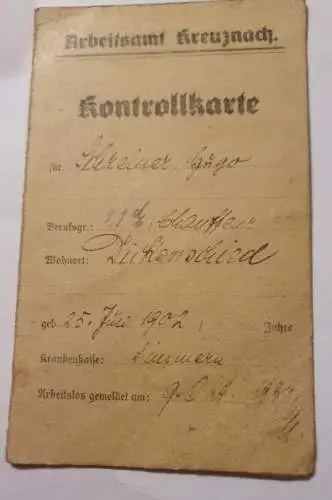 Arbeitsamt Kreuznach.
Kontrollkarte
für Schreiner Hugo
Berufsgr.: Chauffeur
Wohnort: Dickenschied
geb. 25. Juli 1902 Jahre
Krankenkasse: Simmern
Arbeitslos gemeldet am: 9. Okt.